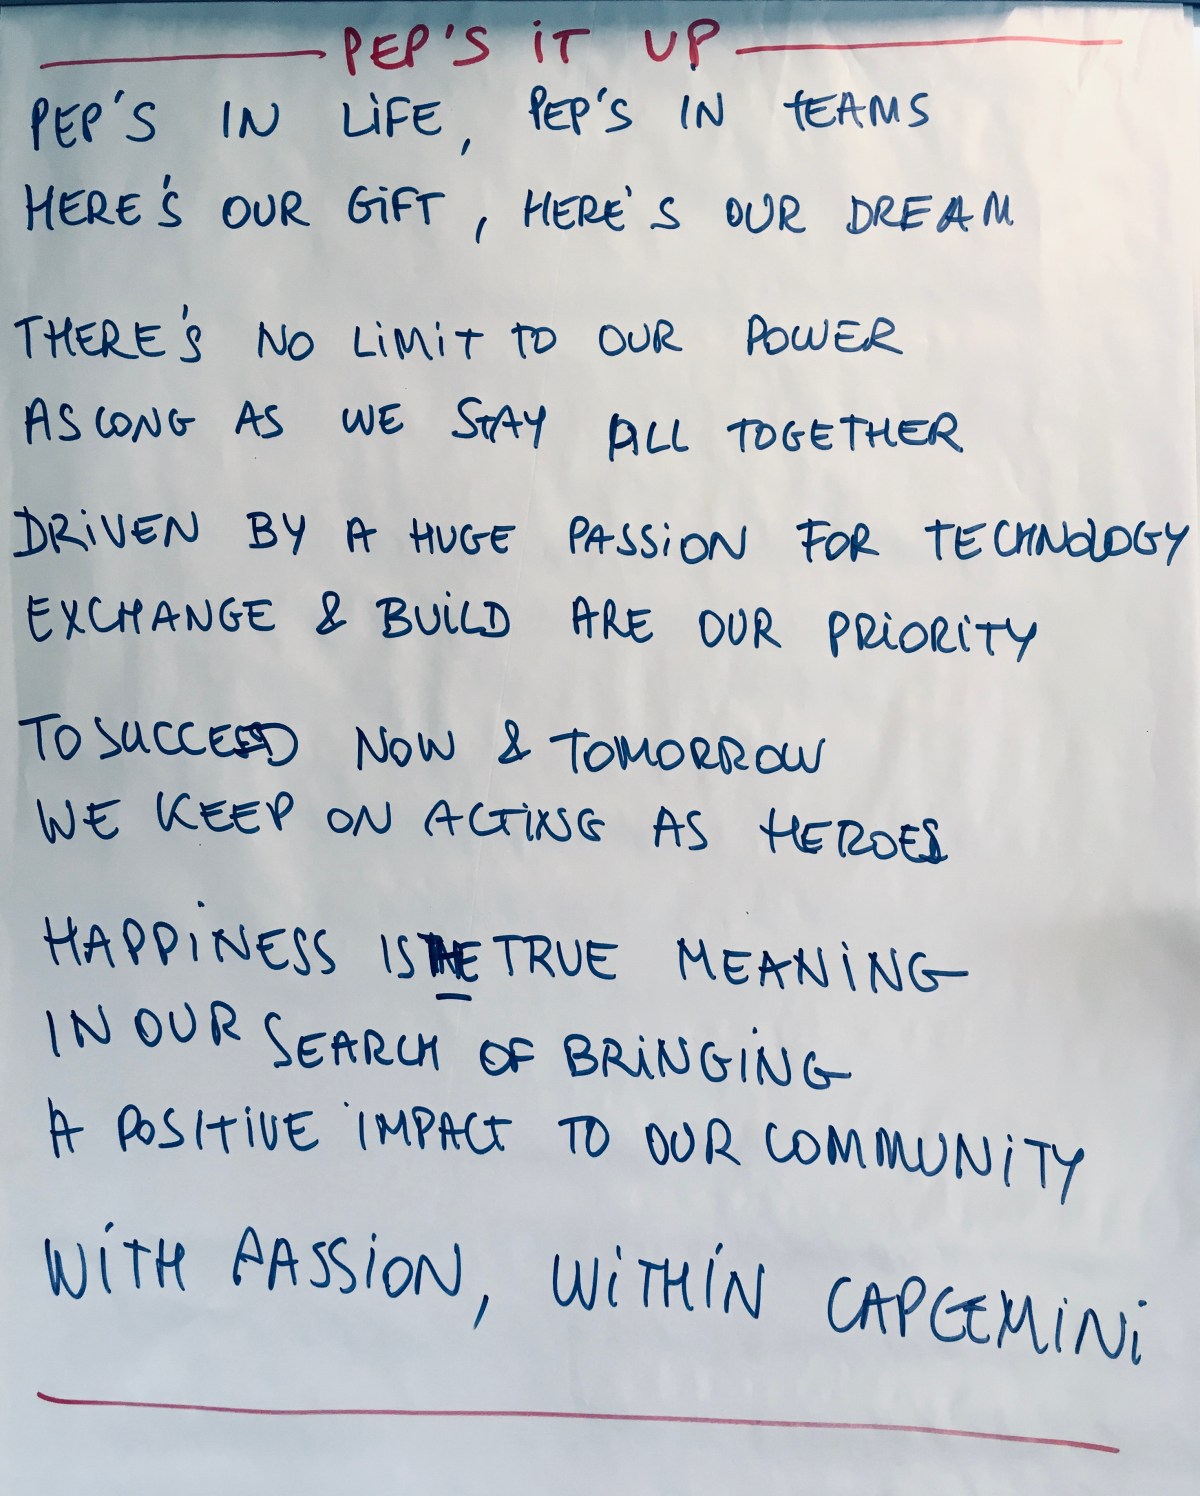 PEP'S IT UP
PEP'S IN LIFE, PEP'S IN TEAMS
HERE'S OUR GIFT, HERE'S OUR DREAM
THERE'S NO LIMIT TO OUR POWER
AS LONG AS WE STAY ALL TOGETHER
DRIVEN BY A HUGE PASSION FOR TECHNOLOGY
EXCHANGE & BUILD ARE OUR PRIORITY
TO SUCCEED NOW & TOMORROW
WE KEEP ON ACTING AS HEROES
HAPPINESS IS THE TRUE MEANING
IN OUR SEARCH OF BRINGING
A POSITIVE IMPACT TO OUR COMMUNITY
WITH PASSION, WITHIN CAPGEMINI